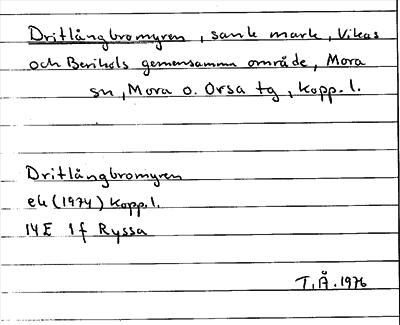 Dritlångbromyren, sank mark, Vikas
och Berikols gemensamma område, Mora
sn, Mora o. Orsa tg, Kopp. l.
Dritlångbromyren
ek (1974) Kopp. l.
14E 1f Ryssa
T.Å. 1976